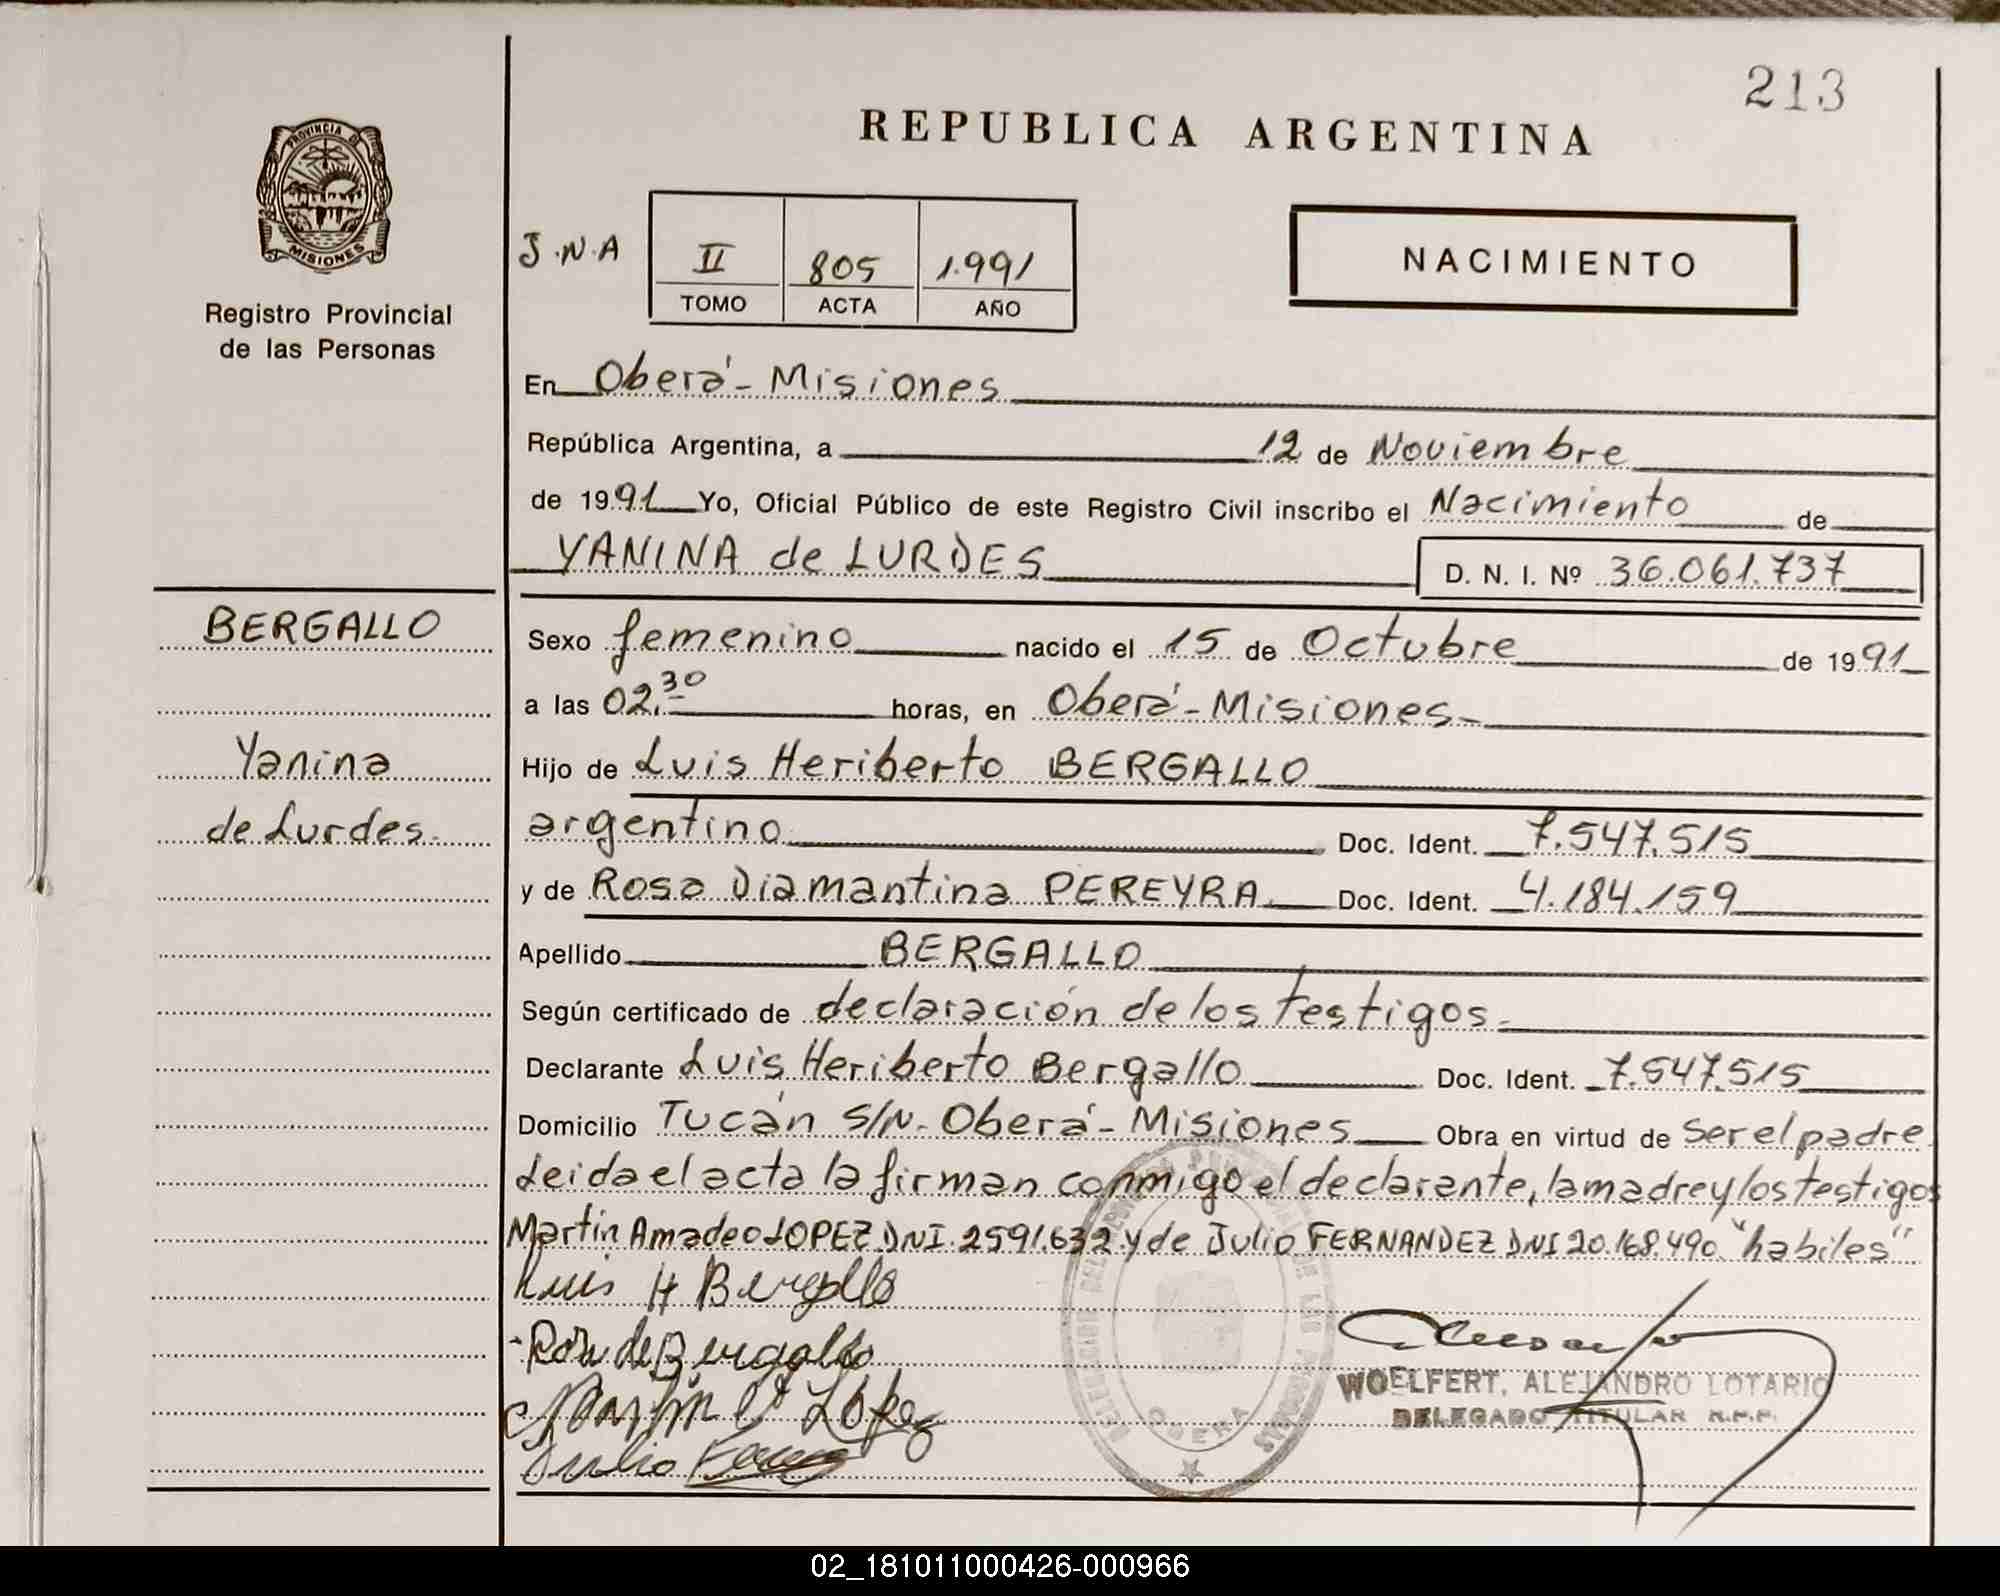 213
REPUBLICA ARGENTINA
PROVINCIA DE
MISIONES
Registro Provincial
de las Personas
J.N.A
II 805 1.991
TOMO ACTA AÑO
NACIMIENTO
En Oberá - Misiones
República Argentina, a 12 de Noviembre
de 1991 Yo, Oficial Público de este Registro Civil inscribo el Nacimiento de
YANINA de LURDES D. N. I. Nº 36.061.737
BERGALLO
Yanina
de Lurdes.
Sexo femenino nacido el 15 de Octubre de 1991
a las 02.30 horas, en Oberá - Misiones -
Hijo de Luis Heriberto BERGALLO
argentino Doc. Ident. 7.547.515
y de Rosa Diamantina PEREYRA. Doc. Ident. 4.184.159
Apellido BERGALLO
Según certificado de declaración de los testigos.
Declarante Luis Heriberto Bergallo Doc. Ident. 7.547.515
Domicilio Tucán S/N. Oberá - Misiones Obra en virtud de ser el padre
Leida el acta la firman conmigo el declarante, la madre y los testigos
Martin Amadeo LOPEZ DNI. 2591.632 y de Julio FERNANDEZ DNI 20.168.490 "habiles"
Luis H Bergallo
Rosa de Bergallo
Martin A López
Julio
DELEGACION DEL REGISTRO PROVINCIAL DE LAS PERSONAS
OBERA
WOELFERT, ALEJANDRO LOTARIO
DELEGADO TITULAR R.P.P.
02_181011000426-000966